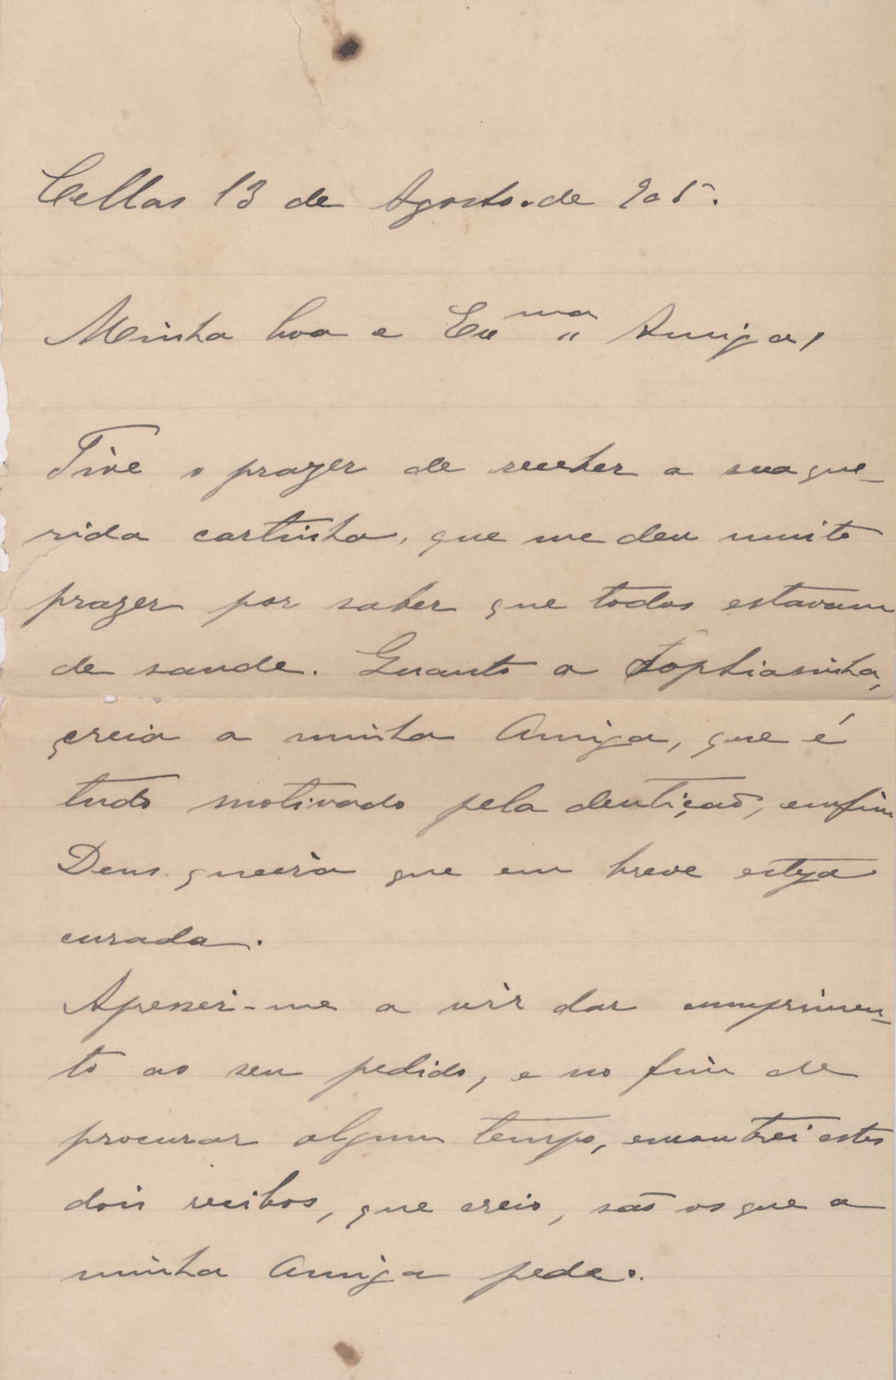 Cellas 13 de Agosto de 905.
Minha boa e Exma Amiga,
Tive o prazer de receber a sua que-
rida cartinha, que me deu muito
prazer por saber que todos estavam
de saude. Quanto a Sophiasinha,
creia a minha Amiga, que é
tudo motivado pela dentição, emfim
Deus queira que em breve esteja
curada.
Apressei-me a vir dar cumprimen-
to ao seu pedido, e no fim de
procurar algum tempo, encontrei estes
dois recibos, que creio, são os que a
minha Amiga pede.